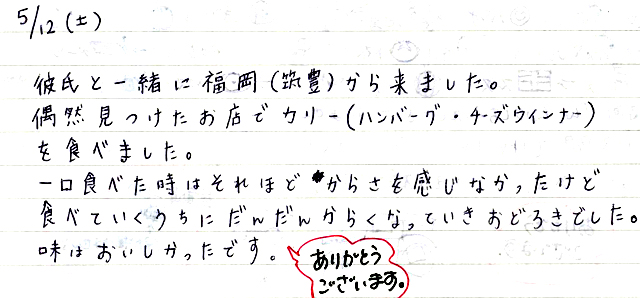 5/12(土)
彼氏と一緒に福岡(筑豊)から来ました。
偶然見つけたお店でカリー(ハンバーグ・チーズウインナー)
を食べました。
一口食べた時はそれほどからさを感じなかったけど
食べていくうちにだんだんからくなっていきおどろきでした。
味はおいしかったです。
ありがとう
ございます。